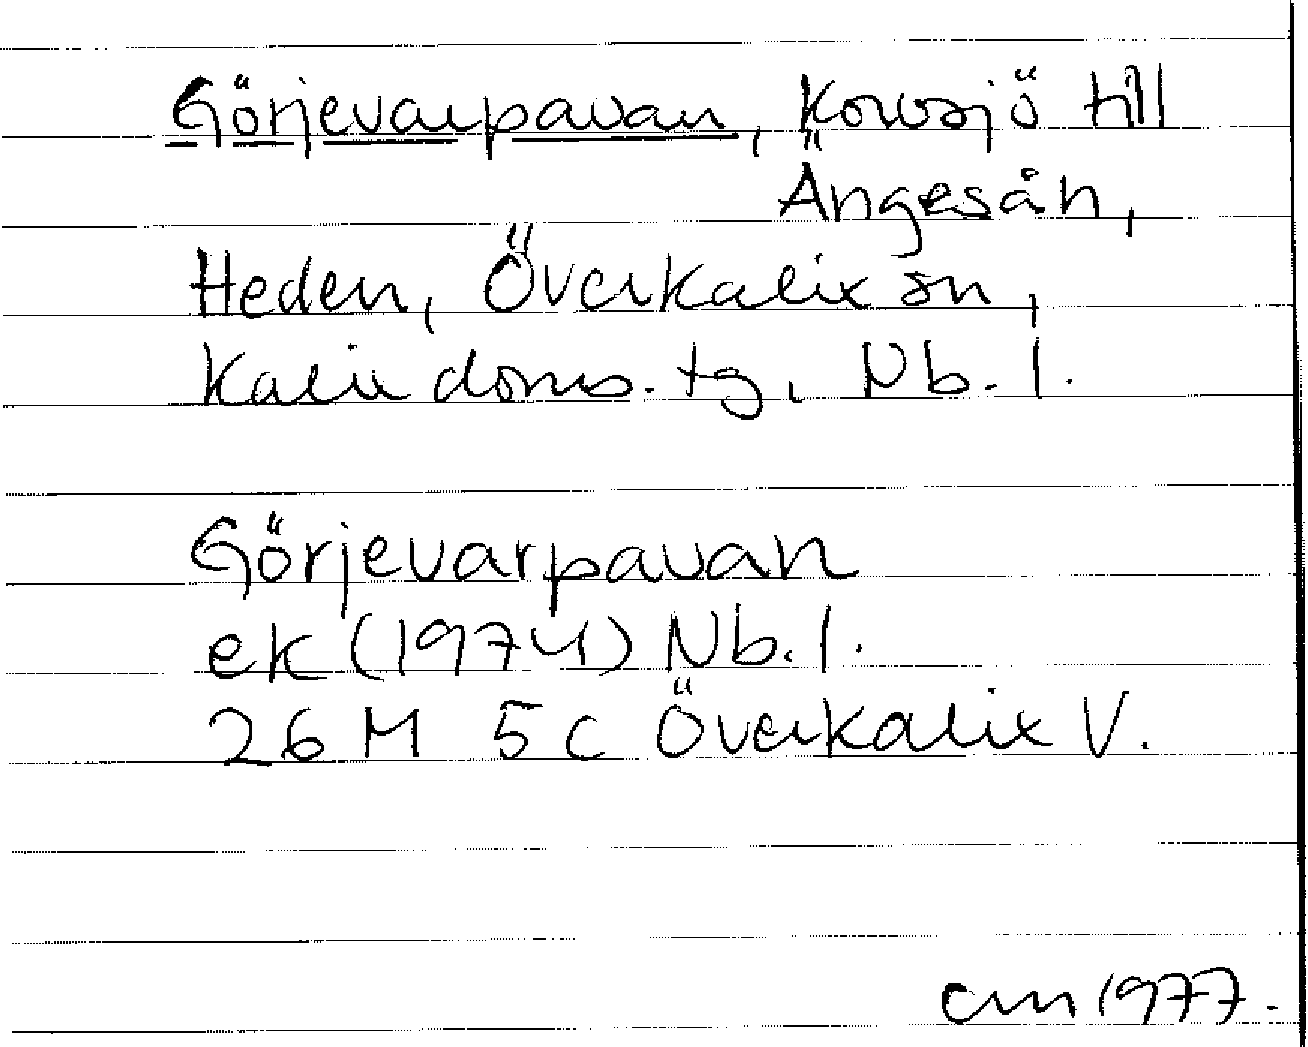 Görjevarpavan, Korvsjö till
Ängesån,
Heden, Överkalix sn,
Kalix doms. tg, Nb. l.
Görjevarpavan
ek (1974) Nb. l.
26 M 5 c Överkalix V.
cm 1977.